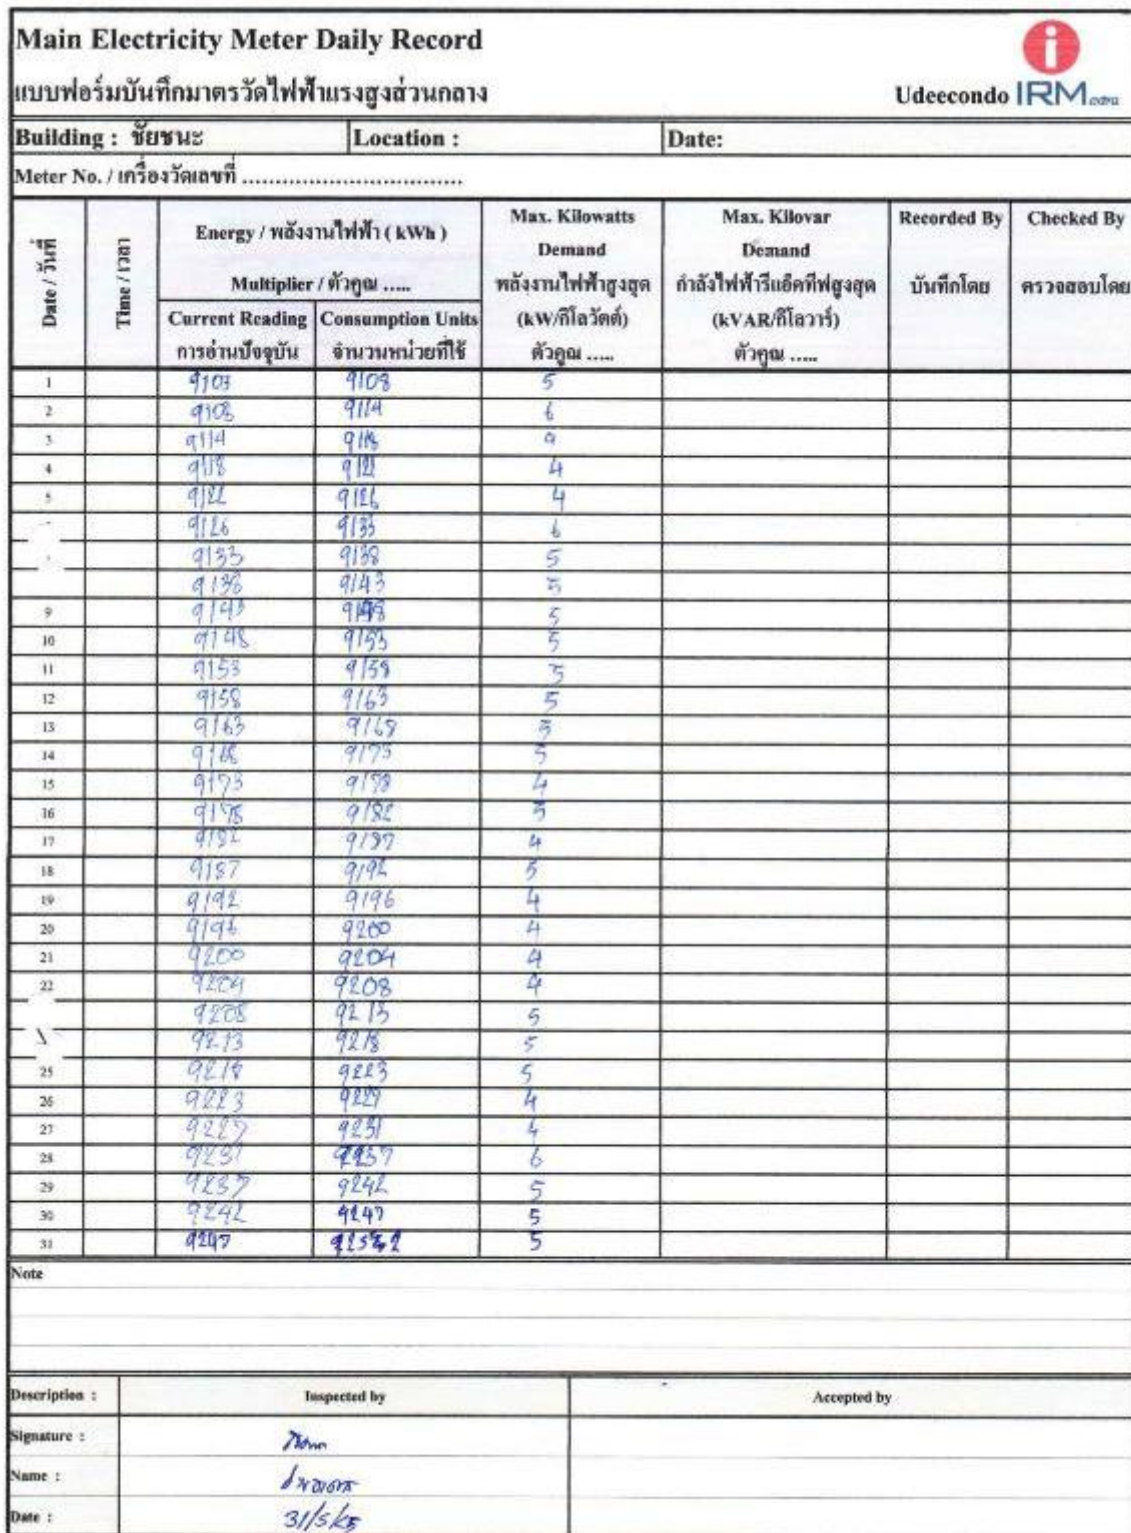 Main Electricity Meter Daily Record
แบบฟอร์มบันทึกมาตรวัดไฟฟ้าแรงสูงส่วนกลาง
Udeecondo IRM
Building : ชัยชนะ Location : Date:
Meter No. / เครื่องวัดเลขที่ .................................
Date / วันที่ Time / เวลา Energy / พลังงานไฟฟ้า ( kWh ) Multiplier / ตัวคูณ ..... Current Reading การอ่านปัจจุบัน Consumption Units จำนวนหน่วยที่ใช้ Max. Kilowatts Demand พลังงานไฟฟ้าสูงสุด (kW/กิโลวัตต์) ตัวคูณ ..... Max. Kilovar Demand กำลังไฟฟ้ารีแอ็คทีฟสูงสุด (kVAR/กิโลวาร์) ตัวคูณ ..... Recorded By บันทึกโดย Checked By ตรวจสอบโดย
1 9103 9108 5
2 9108 9114 6
3 9114 9118
4 9118 4
5 9122 9126 4
9126 9133 6
9133 9138 5
9138 9143 5
9 9143 9148 5
10 9148 9153 5
11 9153 9158 5
12 9158 9163 5
13 9163 9168 5
14 9168 9173 5
15 9173 9178 4
16 9178 9182 5
17 9182 9187 4
18 9187 9192 5
19 9192 9196 4
20 9196 9200 4
21 9200 9204 4
22 9204 9208 4
9208 9213 5
9213 9218 5
25 9218 9223 5
26 9223 9227 4
27 9227 9231 4
28 9231 9237 6
29 9237 9242 5
30 9242 9247 5
31 9247 5
Note
Description : Inspected by Accepted by
Signature :
Name :
Date : 31/5/65